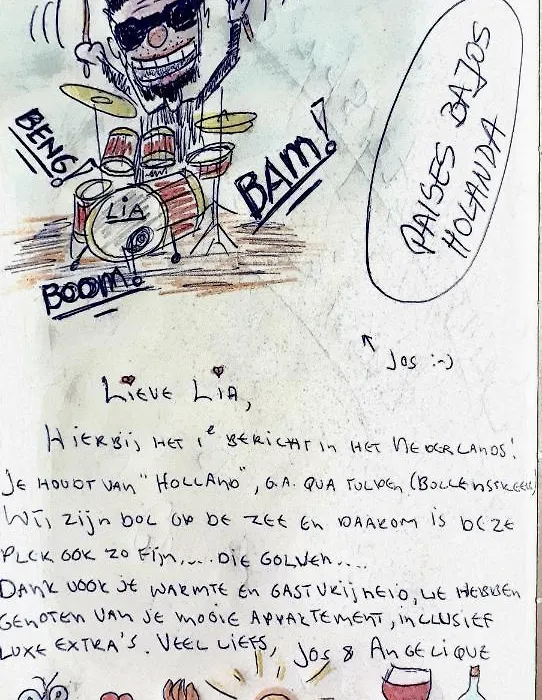 BENG!
BAM!
LIA
BOOM!
PAISES BAJOS
HOLANDA
Jos :-)
LIEVE LIA,
HIERBIJ HET 1e BERICHT IN HET NEDERLANDS!
JE HOUDT VAN "HOLLAND", O.A. QUA TULPEN (BOLLENSTREEK)
WIJ ZIJN DOL OP DE ZEE EN DAAROM IS DEZE
PLEK OOK ZO FIJN,... DIE GOLVEN....
DANK VOOR JE WARMTE EN GASTVRIJHEID, WE HEBBEN
GENOTEN VAN JE MOOIE APPARTEMENT, INCLUSIEF
LUXE EXTRA'S. VEEL LIEFS, JOS & ANGELIQUE